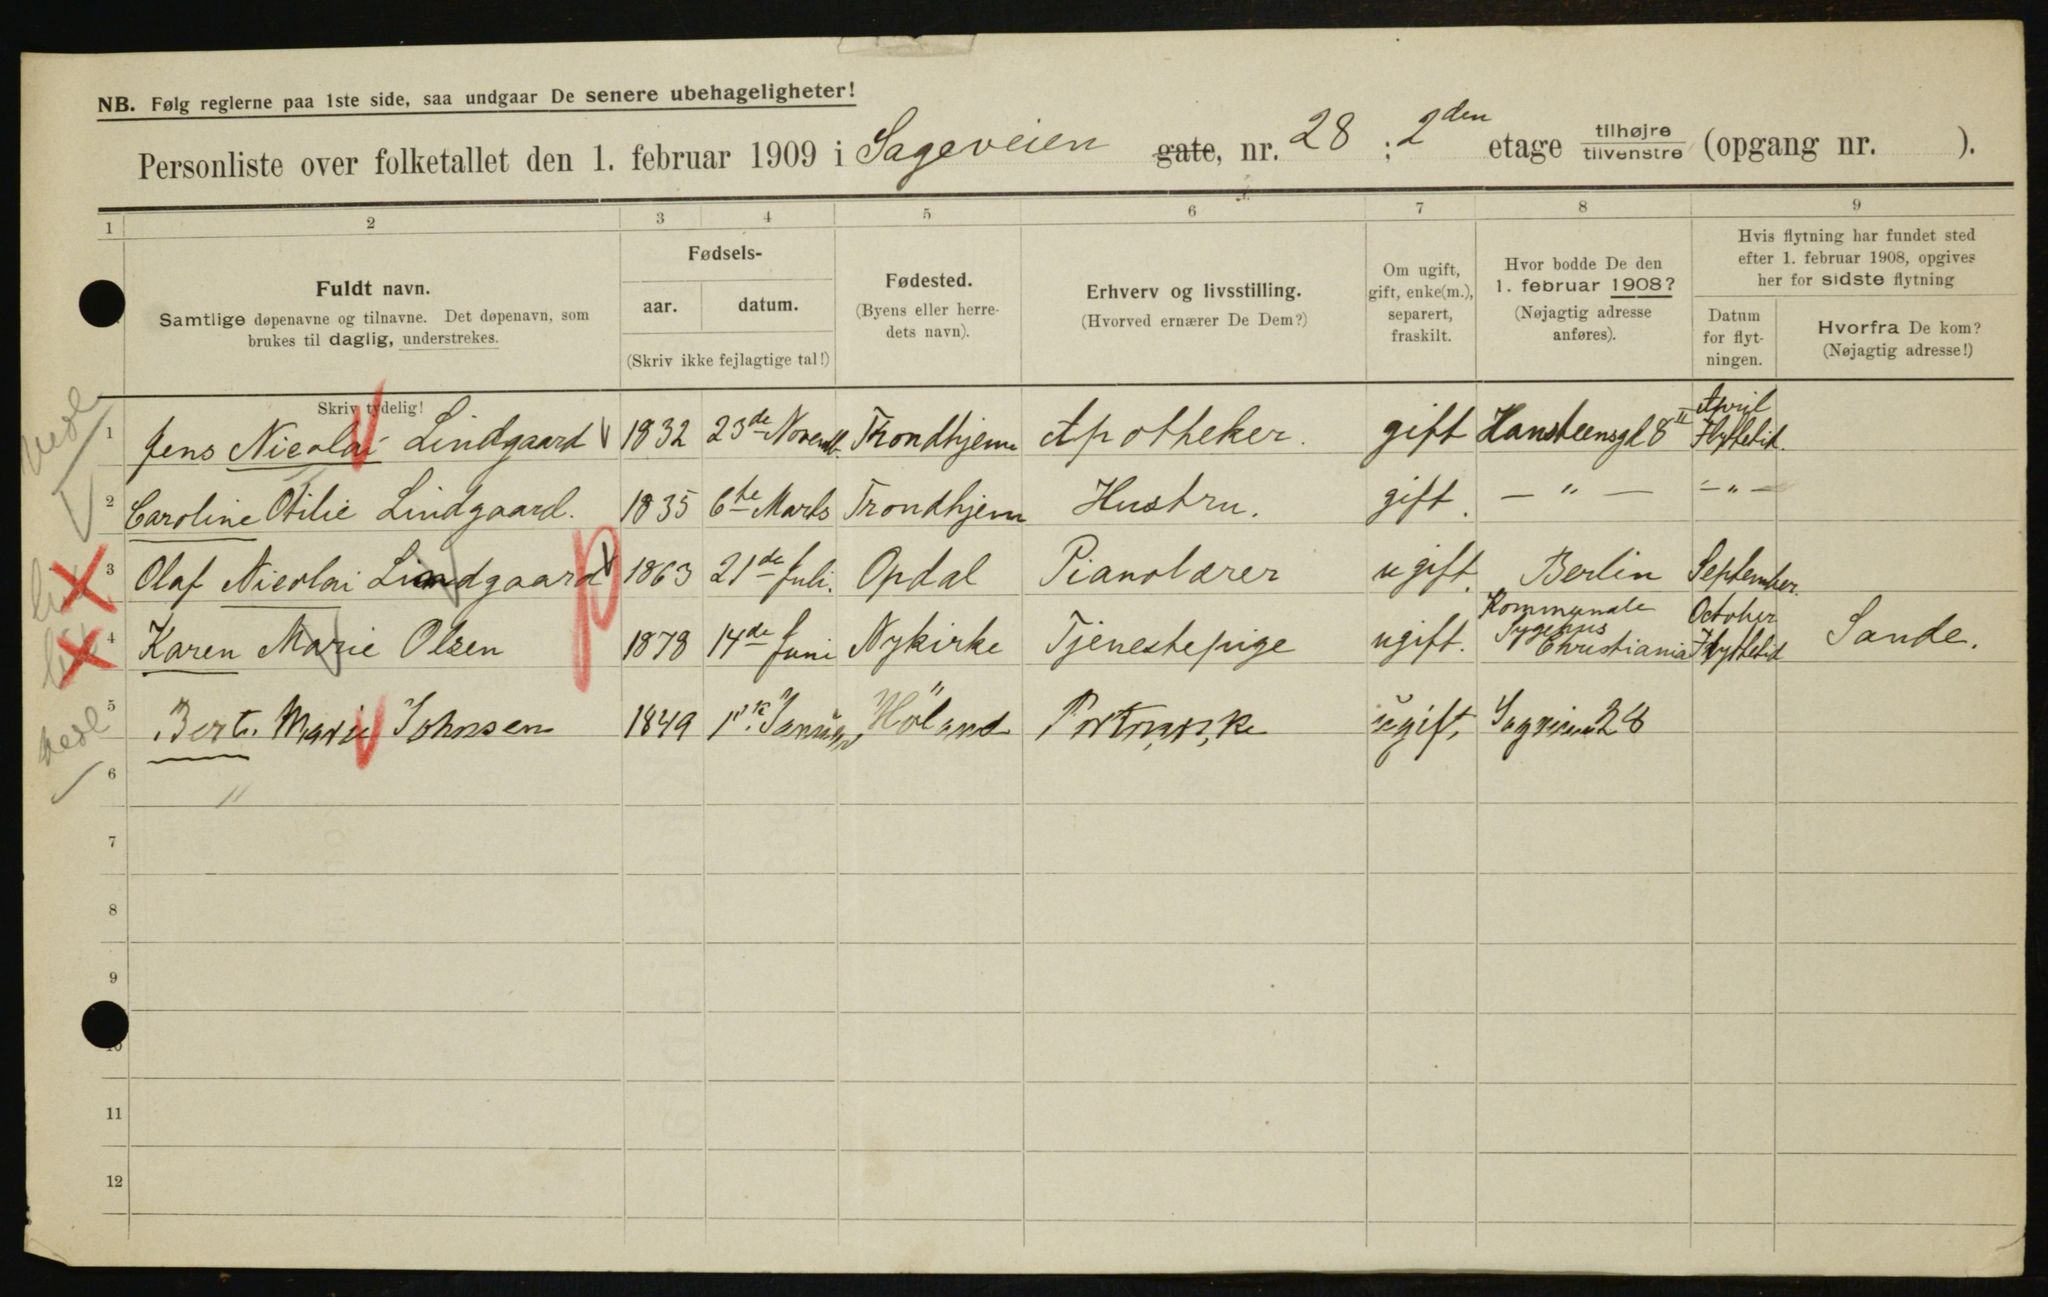 NB. Følg reglerne paa 1ste side, saa undgaar De senere ubehageligheter!
Personliste over folketallet den 1. februar 1909 i Sageveien gate, nr. 28 ; 2den etage tilhøjre tilvenstre (opgang nr. ).
1 2 3 4 5 6 7 8 9
Fuldt navn.
Samtlige døpenavne og tilnavne. Det døpenavn, som
brukes til daglig, understrekes.
Skriv tydelig!
Fødsels-
aar. datum.
(Skriv ikke fejlagtige tal!)
Fødested.
(Byens eller herre-
dets navn).
Erhverv og livsstilling.
(Hvorved ernærer De Dem?)
Om ugift,
gift, enke(m.),
separert,
fraskilt.
Hvor bodde De den
1. februar 1908?
(Nøjagtig adresse
anføres).
Hvis flytning har fundet sted
efter 1. februar 1908, opgives
her for sidste flytning
Datum
for flyt-
ningen.
Hvorfra De kom?
(Nøjagtig adresse!)
1 Jens Nicolai Lindgaard 1832 23de Novemb. Trondhjem Apotheker. gift Hansteensgd 8 II April Flyttetid.
2 Caroline Otilie Lindgaard. 1835 6te Marts Trondhjem Hustru. gift. — " — — " —
3 Olaf Nicolai Lindgaard 1863 21de Juli. Opdal Pianolærer ugift. Berlin September.
4 Karen Marie Olsen 1878 14de Juni Nykirke Tjenestepige ugift. Kommunale Sygehus Christiania October Flyttetid Sande.
5 Bert. Marie Johnsen 1849 Januar Höland ugift, 28
6 "
7
8
9
10
11
12